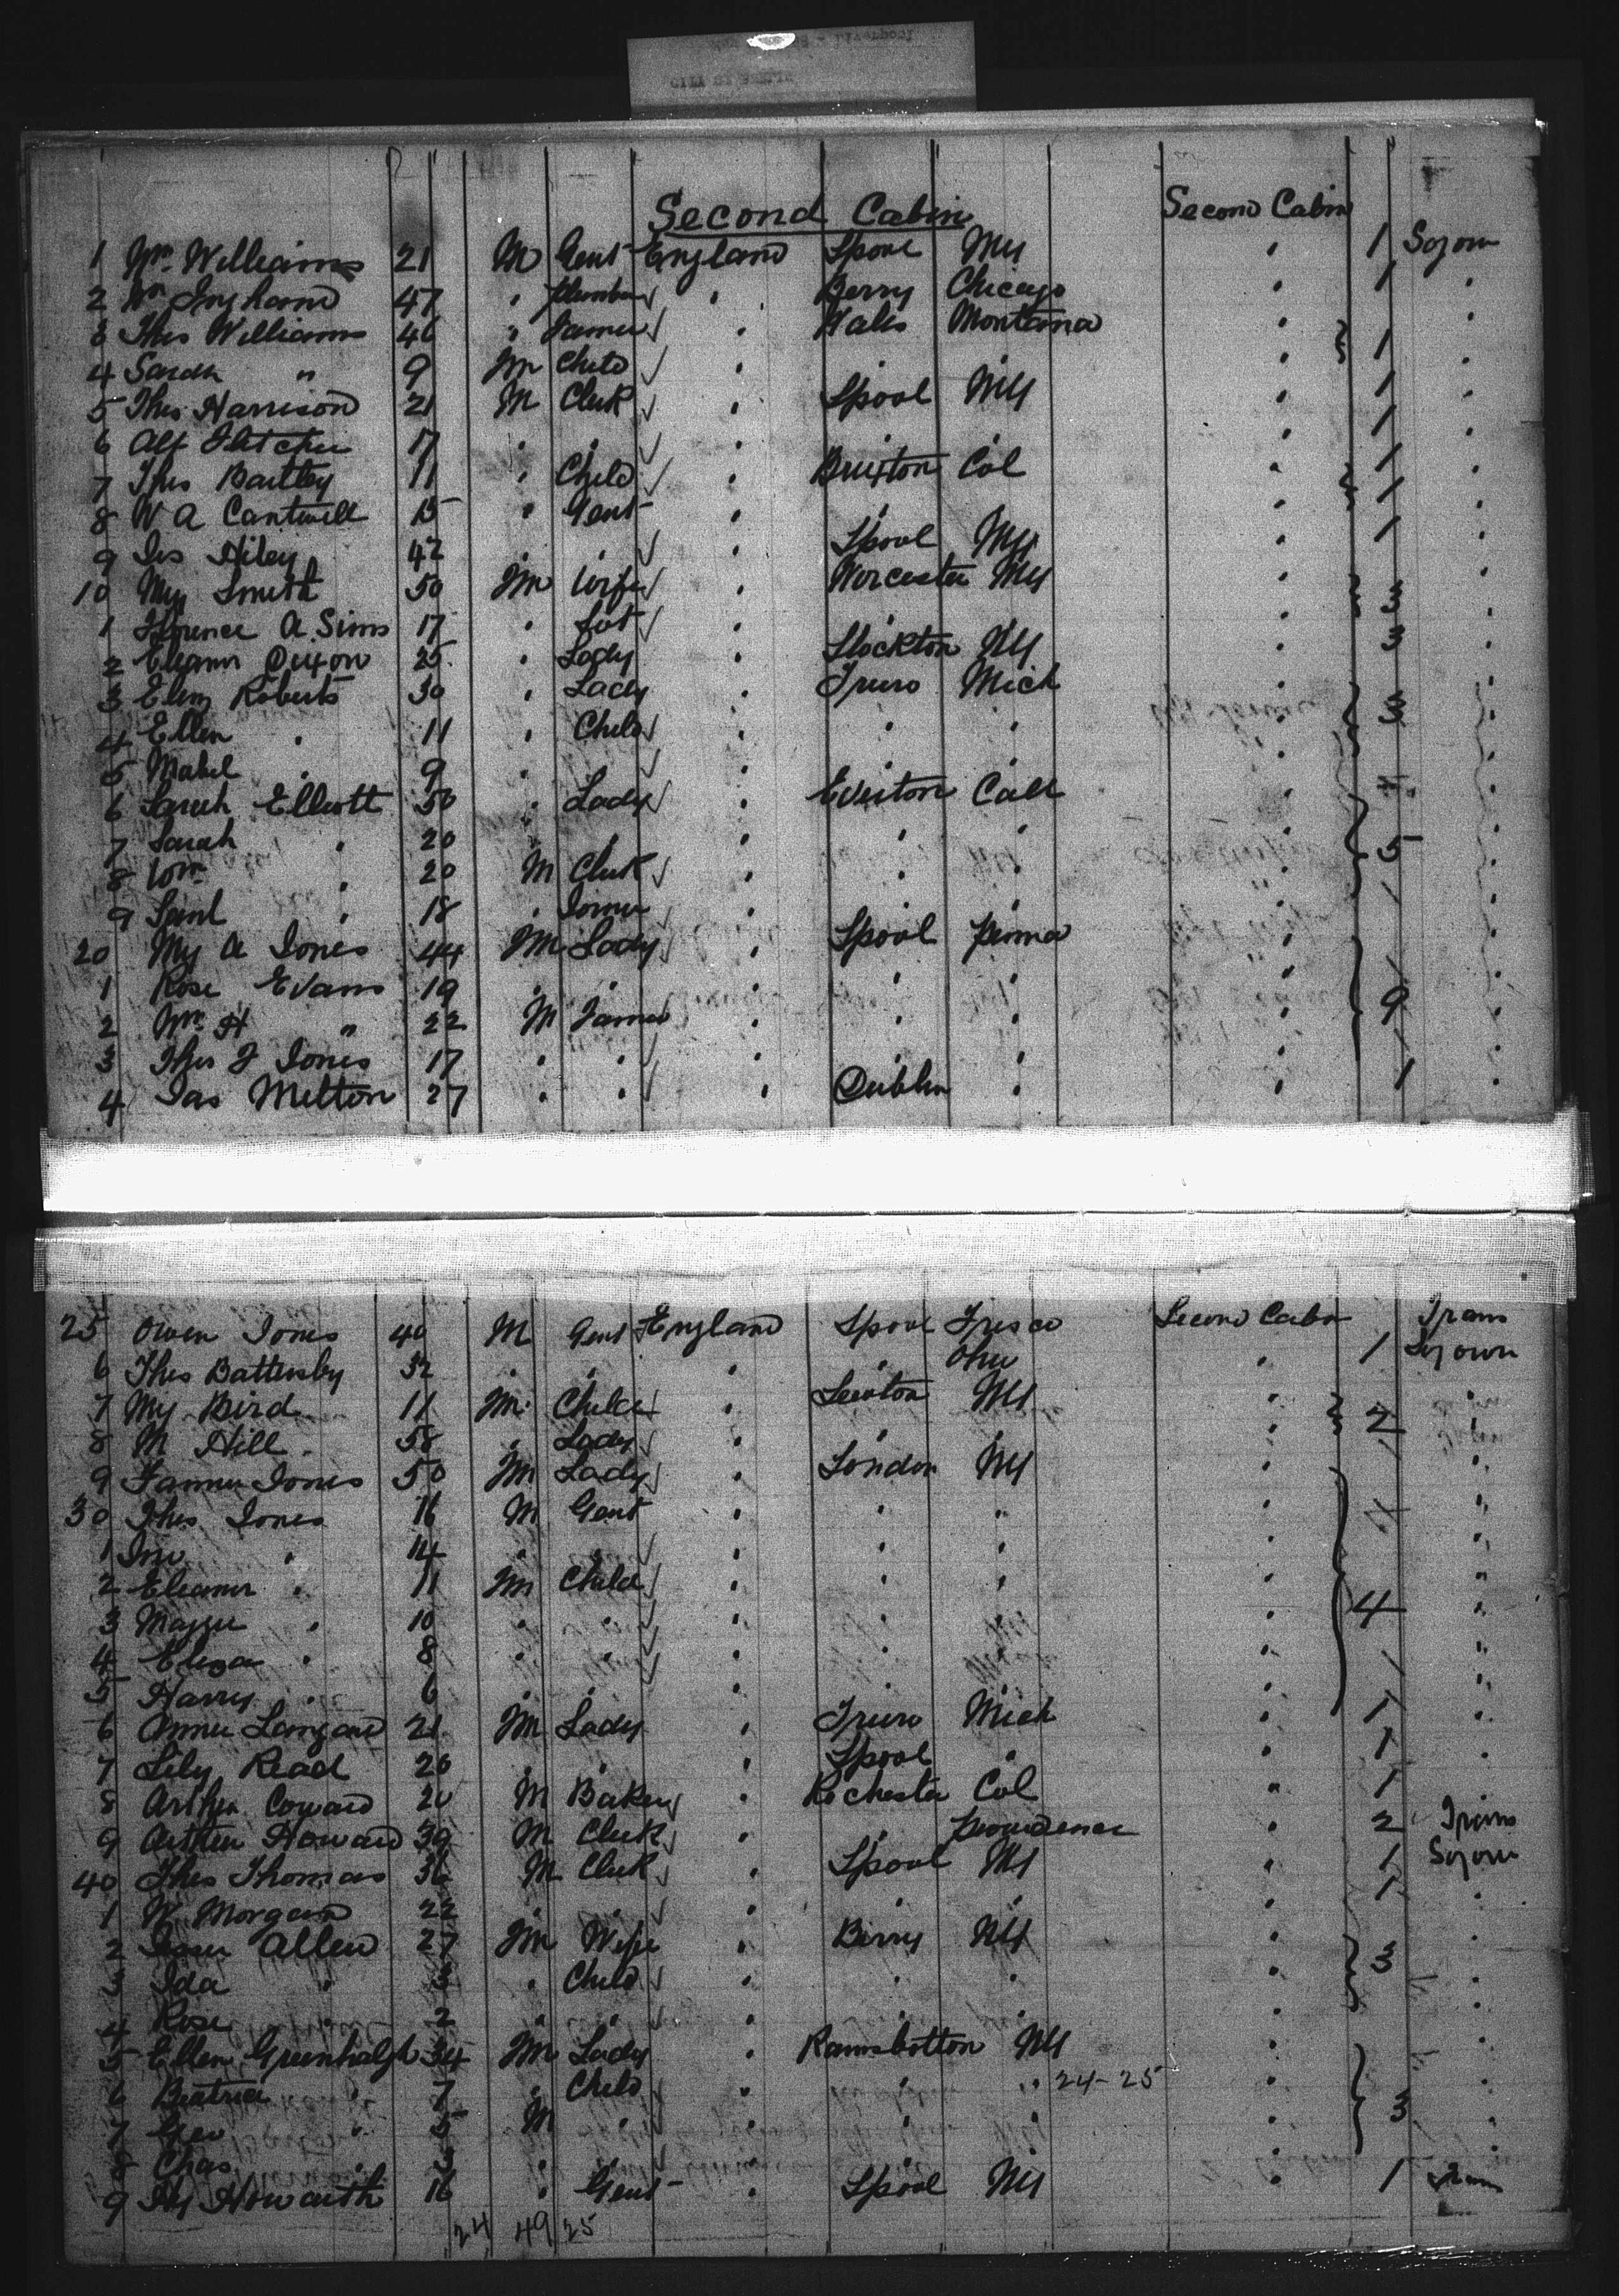 Second Cabin Second Cabin
1 Wm Williams 21 M Gent England Lpool NY 1 Sojourn
2 Wm Ingham 47 " Plumber " Berry Chicago " 1 "
3 Thos Williams 46 " " Wales Montana "
4 Sarah " 9 Fm Child " " " " 1 "
5 Thos Harrison 21 M Clerk " Lpool NY " 1 "
6 Alf Fletcher 17 " " " " " " 1 "
7 Thos Bartley 11 " Child " Col " 1 "
8 W A Cantwell 15 " Gent " " " " 1 "
9 Jas 42 " " " Lpool NY " 1 "
10 My Smith 50 Fm Wife " Worcester NY "
1 Florence A Sims 17 " " " " " 3 "
2 Eleanor Dixon 25 " Lady " Stockton NY " 3 "
3 Eliz Roberts 30 " Lady " Truro Mich "
4 Ellen " 11 " Child " " " " 3 "
5 Mabel " 9 " " " " " " "
6 Sarah Elliott 50 " Lady " Everton Call "
7 Sarah " 20 " " " " " " 5 "
8 Wm " 20 M Clerk " " " " "
9 Saml " 18 " " " " " "
20 My A Jones 44 Fm Lady " Lpool Penna "
1 Rose Evans 19 " " " " " " "
2 Wm H " 22 M " " " " 9 "
3 Thos J Jones 17 " " " " " " "
4 Jas Melton 27 " " " Dublin " " 1 "
25 Owen Jones 40 M Gent England Lpool Frisco Second Cabin Trans
6 Thos Battersby 32 " " " " Ohio " 1 Sojourn
7 My Bird 11 Fm Child " NY " "
8 M Hill 58 " Lady " " " " 2 "
9 Fannie Jones 50 Fm Lady " London NY " "
30 Thos Jones 16 M Gent " " " " "
1 Jno " 14 " " " " " " "
2 Eleanor " 11 Fm Child " " " " "
3 Maggie " 10 " " " " " " 4 "
4 Eliza " 8 " " " " " " "
5 Harry " 6 " " " " " " "
6 Annie 21 Fm Lady " Truro Mich " 1 "
7 Lily Read 20 " " " Lpool " " 1 "
8 Arthur Coward 20 M Baker " Rochester Col " 1 "
9 Arthur Howard 39 M Clerk " " Providence " 2 Trans
40 Thos Thomas 36 M Clerk " Lpool NY " 1 Sojourn
1 W Morgan 22 " " " " " " 1 "
2 Allen 27 Fm Wife " Berry NY " "
3 Ida " 3 " Child " " " " 3 "
4 Rose " 2 " " " " " " "
5 Ellen Greenhalgh 34 Fm Lady " Ramsbotton NY " "
6 Beatrice " 7 " Child " " " 24-25 " "
7 Geo " 5 M " " " " " 3 "
8 Chas " 3 " " " " " " "
9 Hy Howarth 16 " Gent " Lpool NY " 1 Trans
24 49 25